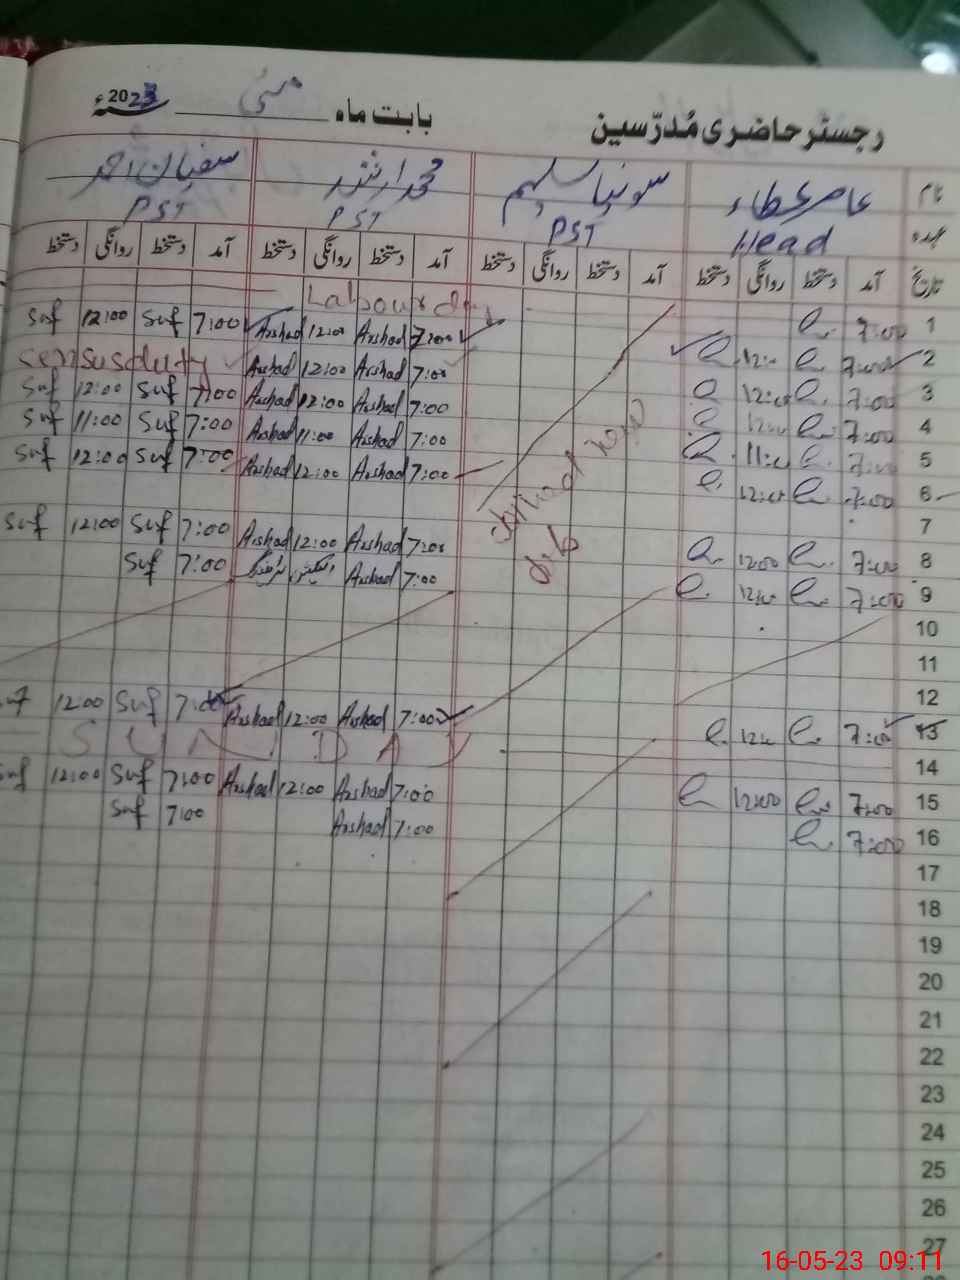 رجسٹر حاضری مُدرّسین بابت ماہ مئی 2023ء
نام عامر عطاء سونیا سلیم محمد ارشد سفیان احمد
عہدہ Head PST PST PST
تاریخ آمد دستخط روانگی دستخط آمد دستخط روانگی دستخط آمد دستخط روانگی دستخط آمد دستخط روانگی دستخط
Labour day
1 7:00
2 7:00 12:00 7:00 Arshad 12:00 Arshad 7:00 Suf 12:00 Suf
3 7:00 12:00 7:00 Arshad 12:00 Arshad sensus duty
4 7:00 12:00 7:00 Arshad 12:00 Arshad 7:00 Suf 12:00 Suf
5 7:00 11:00 7:00 Arshad 11:00 Arshad 7:00 Suf 11:00 Suf
6 7:00 12:00 7:00 Arshad 12:00 Arshad 7:00 Suf 12:00 Suf
7
8 7:00 12:00 7:00 Arshad 12:00 Arshad 7:00 Suf 12:00 Suf
9 7:00 12:00 7:00 Arshad 7:00 Suf
10
11
12
13 7:00 12:00 7:00 Arshad 12:00 Arshad 7:00 Suf 12:00 Suf
14 SUNDAY
15 7:00 12:00 7:00 Arshad 12:00 Arshad 7:00 Suf 12:00 Suf
16 7:00 7:00 Arshad 7:00 Suf
17
18
19
20
21
22
23
24
25
26
27
16-05-23 09:11